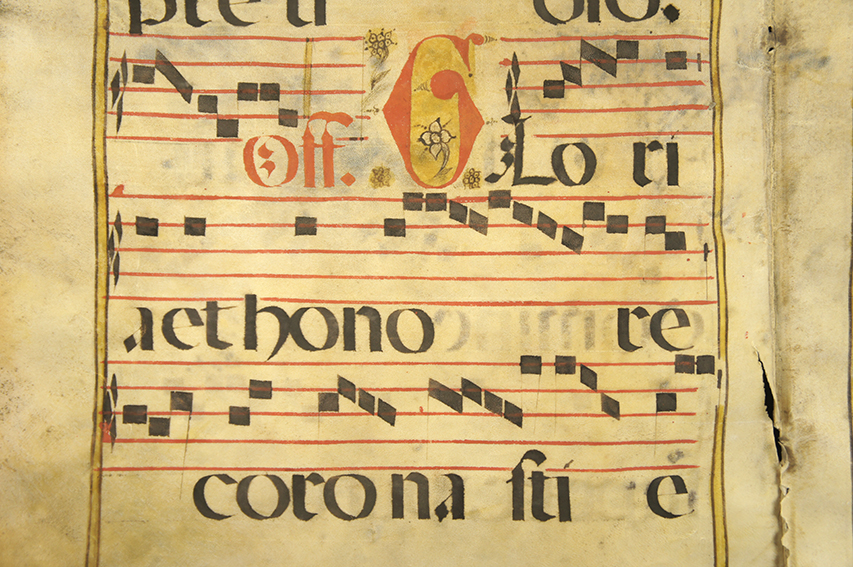 preti oso.
Off. GLo ri
a et hono re
corona sti e